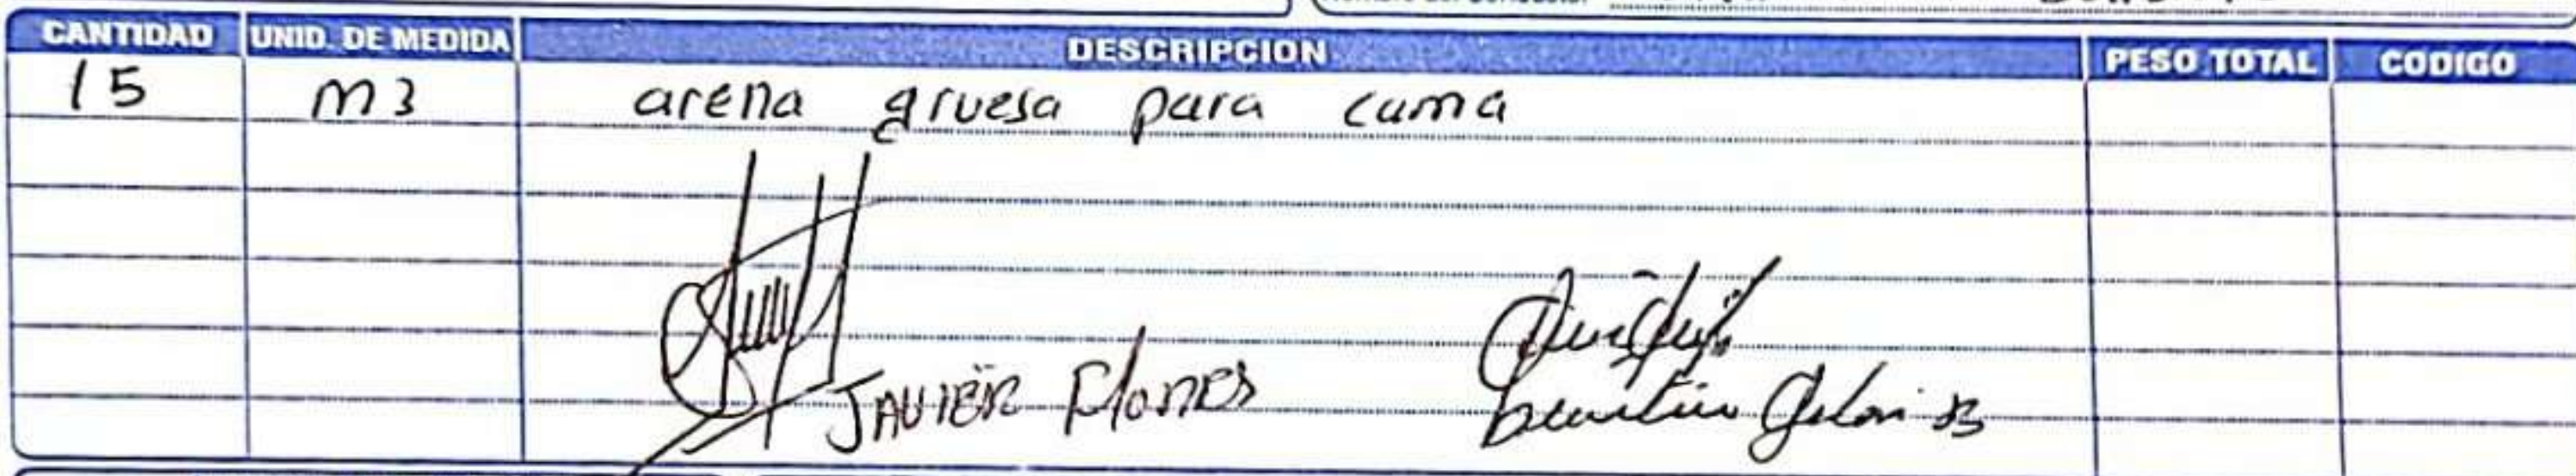 CANTIDAD UNID. DE MEDIDA DESCRIPCION PESO TOTAL CODIGO
15 m3 arena gruesa para cama
JAVIER Flores